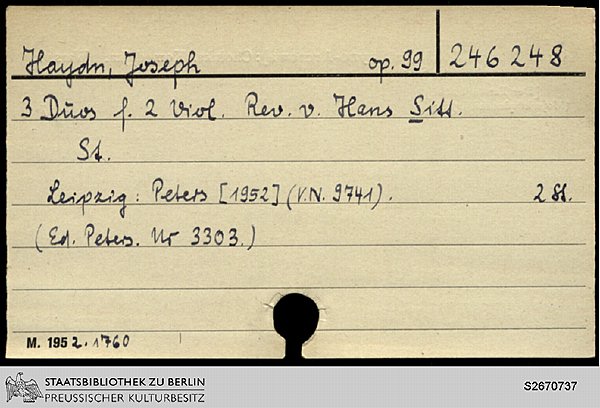 Haydn, Joseph op. 99 246 248
3 Duos f. 2 Viol. Rev. v. Hans Sitt.
St.
Leipzig: Peters [1952] (V.N. 9741). 2 St.
(Ed. Peters. Nr 3303.)
M. 1952. 1760
STAATSBIBLIOTHEK ZU BERLIN
PREUSSISCHER KULTURBESITZ
S2670737